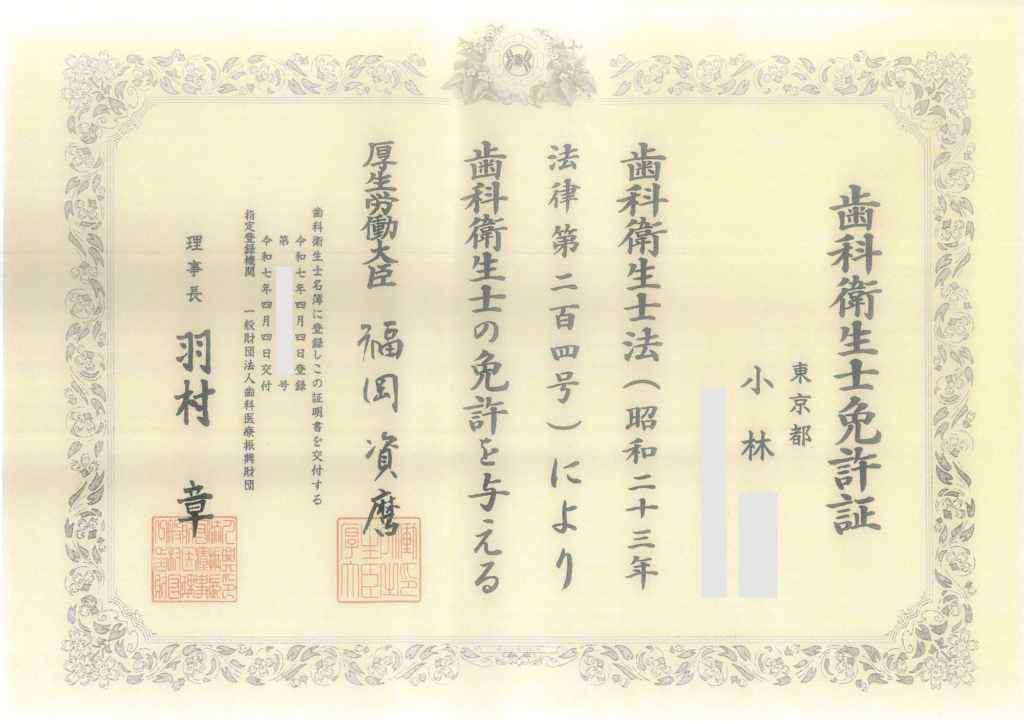 歯科衛生士免許証
東京都
小林
歯科衛生士法(昭和二十三年
法律第二百四号)により
歯科衛生士の免許を与える
厚生労働大臣 福岡資麿
歯科衛生士名簿に登録しこの証明書を交付する
令和七年四月四日登録
第 号
令和七年四月四日交付
指定登録機関 一般財団法人歯科医療振興財団
理事長 羽村章